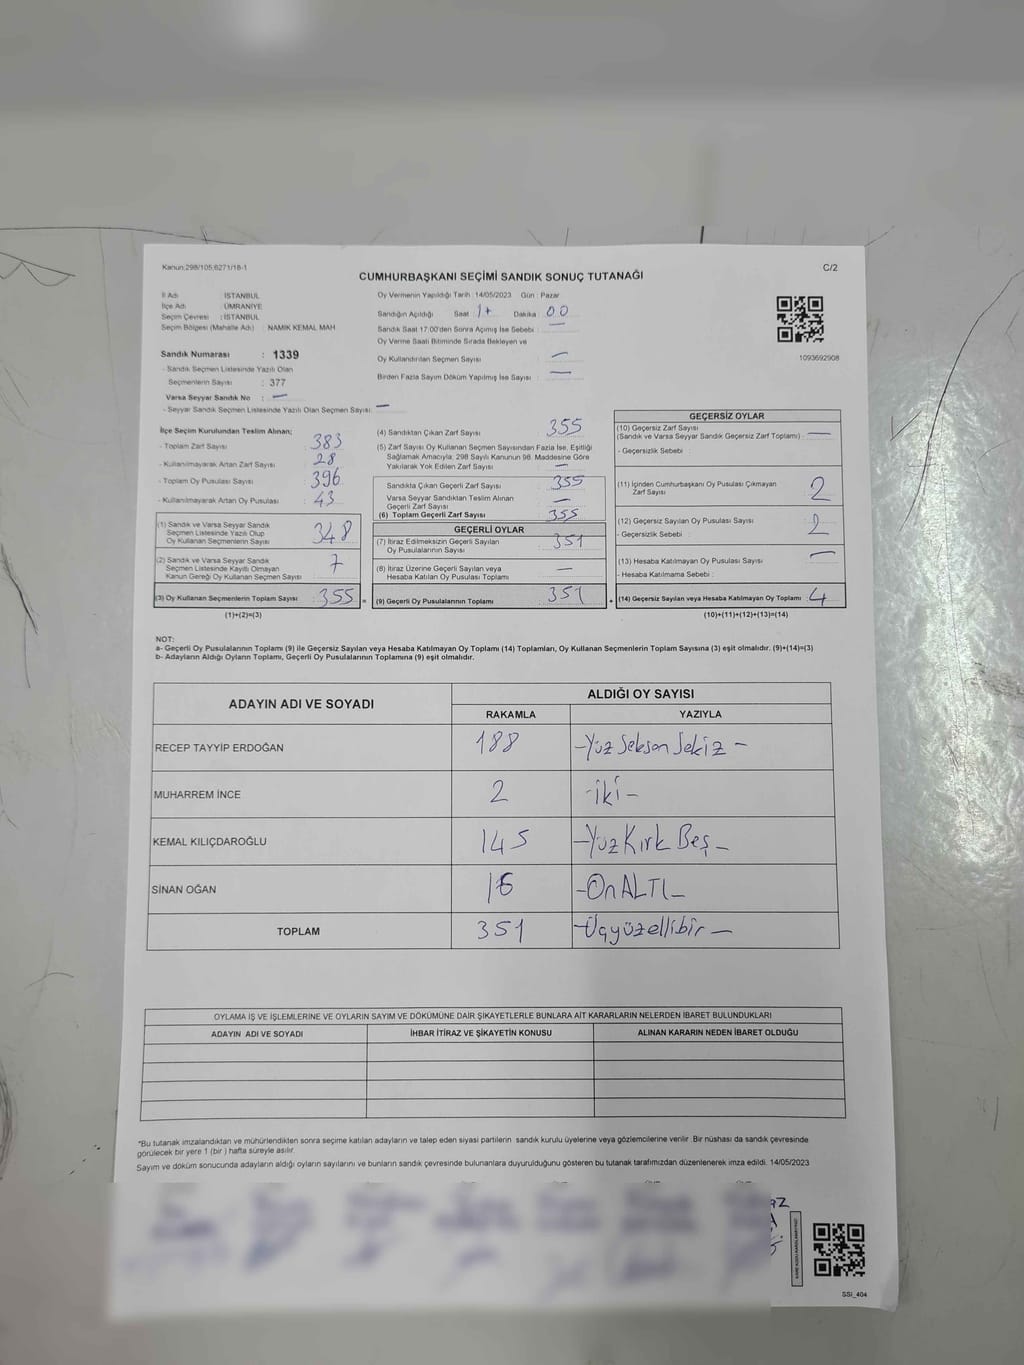 Kanun;298/105,6271/18-1
C/2
CUMHURBAŞKANI SEÇİMİ SANDIK SONUÇ TUTANAĞI
İl Adı : İSTANBUL
İlçe Adı : ÜMRANİYE
Seçim Çevresi : İSTANBUL
Seçim Bölgesi (Mahalle Adı) : NAMIK KEMAL MAH
Sandık Numarası : 1339
- Sandık Seçmen Listesinde Yazılı Olan
Seçmenlerin Sayısı : 377
Varsa Seyyar Sandık No : —
- Seyyar Sandık Seçmen Listesinde Yazılı Olan Seçmen Sayısı: —
Oy Vermenin Yapıldığı Tarih : 14/05/2023 Gün : Pazar
Sandığın Açıldığı Saat : Dakika : 00
Sandık Saat 17:00'den Sonra Açımış İse Sebebi : —
Oy Verme Saati Bitiminde Sırada Bekleyen ve
Oy Kullandırılan Seçmen Sayısı : —
Birden Fazla Sayım Döküm Yapılmış İse Sayısı : —
1093692908
İlçe Seçim Kurulundan Teslim Alınan;
- Toplam Zarf Sayısı : 383
- Kullanılmayarak Artan Zarf Sayısı : 28
- Toplam Oy Pusulası Sayısı : 396
- Kullanılmayarak Artan Oy Pusulası : 43
(1) Sandık ve Varsa Seyyar Sandık
Seçmen Listesinde Yazılı Olup
Oy Kullanan Seçmenlerin Sayısı : 348
(2) Sandık ve Varsa Seyyar Sandık
Seçmen Listesinde Kayıtlı Olmayan
Kanun Gereği Oy Kullanan Seçmen Sayısı : 7
(3) Oy Kullanan Seçmenlerin Toplam Sayısı : 355 =
(1)+(2)=(3)
(4) Sandıktan Çıkan Zarf Sayısı : 355
(5) Zarf Sayısı Oy Kullanan Seçmen Sayısından Fazla İse, Eşitliği
Sağlamak Amacıyla; 298 Sayılı Kanunun 98. Maddesine Göre
Yakılarak Yok Edilen Zarf Sayısı : —
Sandıkta Çıkan Geçerli Zarf Sayısı : 355
Varsa Seyyar Sandıktan Teslim Alınan
Geçerli Zarf Sayısı : —
(6) Toplam Geçerli Zarf Sayısı : 355
GEÇERLİ OYLAR
(7) İtiraz Edilmeksizin Geçerli Sayılan
Oy Pusulalarının Sayısı : 351
(8) İtiraz Üzerine Geçerli Sayılan veya
Hesaba Katılan Oy Pusulası Toplamı : —
(9) Geçerli Oy Pusulalarının Toplamı : 351 +
GEÇERSİZ OYLAR
(10) Geçersiz Zarf Sayısı
(Sandık ve Varsa Seyyar Sandık Geçersiz Zarf Toplamı) : —
- Geçersizlik Sebebi :
(11) İçinden Cumhurbaşkanı Oy Pusulası Çıkmayan
Zarf Sayısı : 2
(12) Geçersiz Sayılan Oy Pusulası Sayısı : 2
- Geçersizlik Sebebi :
(13) Hesaba Katılmayan Oy Pusulası Sayısı : —
- Hesaba Katılmama Sebebi :
(14) Geçersiz Sayılan veya Hesaba Katılmayan Oy Toplamı : 4
(10)+(11)+(12)+(13)=(14)
NOT:
a- Geçerli Oy Pusulalarının Toplamı (9) ile Geçersiz Sayılan veya Hesaba Katılmayan Oy Toplamı (14) Toplamları, Oy Kullanan Seçmenlerin Toplam Sayısına (3) eşit olmalıdır. (9)+(14)=(3)
b- Adayların Aldığı Oyların Toplamı, Geçerli Oy Pusulalarının Toplamına (9) eşit olmalıdır.
ADAYIN ADI VE SOYADI ALDIĞI OY SAYISI
RAKAMLA YAZIYLA
RECEP TAYYİP ERDOĞAN 188 -Yüz Seksen Sekiz -
MUHARREM İNCE 2 -iki-
KEMAL KILIÇDAROĞLU 145 -Yüz Kırk Beş -
SİNAN OĞAN 16 -On ALTI-
TOPLAM 351 -Üçyüzellibir-
OYLAMA İŞ VE İŞLEMLERİNE VE OYLARIN SAYIM VE DÖKÜMÜNE DAİR ŞİKAYETLERLE BUNLARA AİT KARARLARIN NELERDEN İBARET BULUNDUKLARI
ADAYIN ADI VE SOYADI İHBAR İTİRAZ VE ŞİKAYETİN KONUSU ALINAN KARARIN NEDEN İBARET OLDUĞU
*Bu tutanak imzalandıktan ve mühürlendikten sonra seçime katılan adayların ve talep eden siyasi partilerin sandık kurulu üyelerine veya gözlemcilerine verilir. Bir nüshası da sandık çevresinde
görülecek bir yere 1 (bir ) hafta süreyle asılır.
Sayım ve döküm sonucunda adayların aldığı oyların sayılarını ve bunların sandık çevresinde bulunanlara duyurulduğunu gösteren bu tutanak tarafımızdan düzenlenerek imza edildi. 14/05/2023
SSİ_404